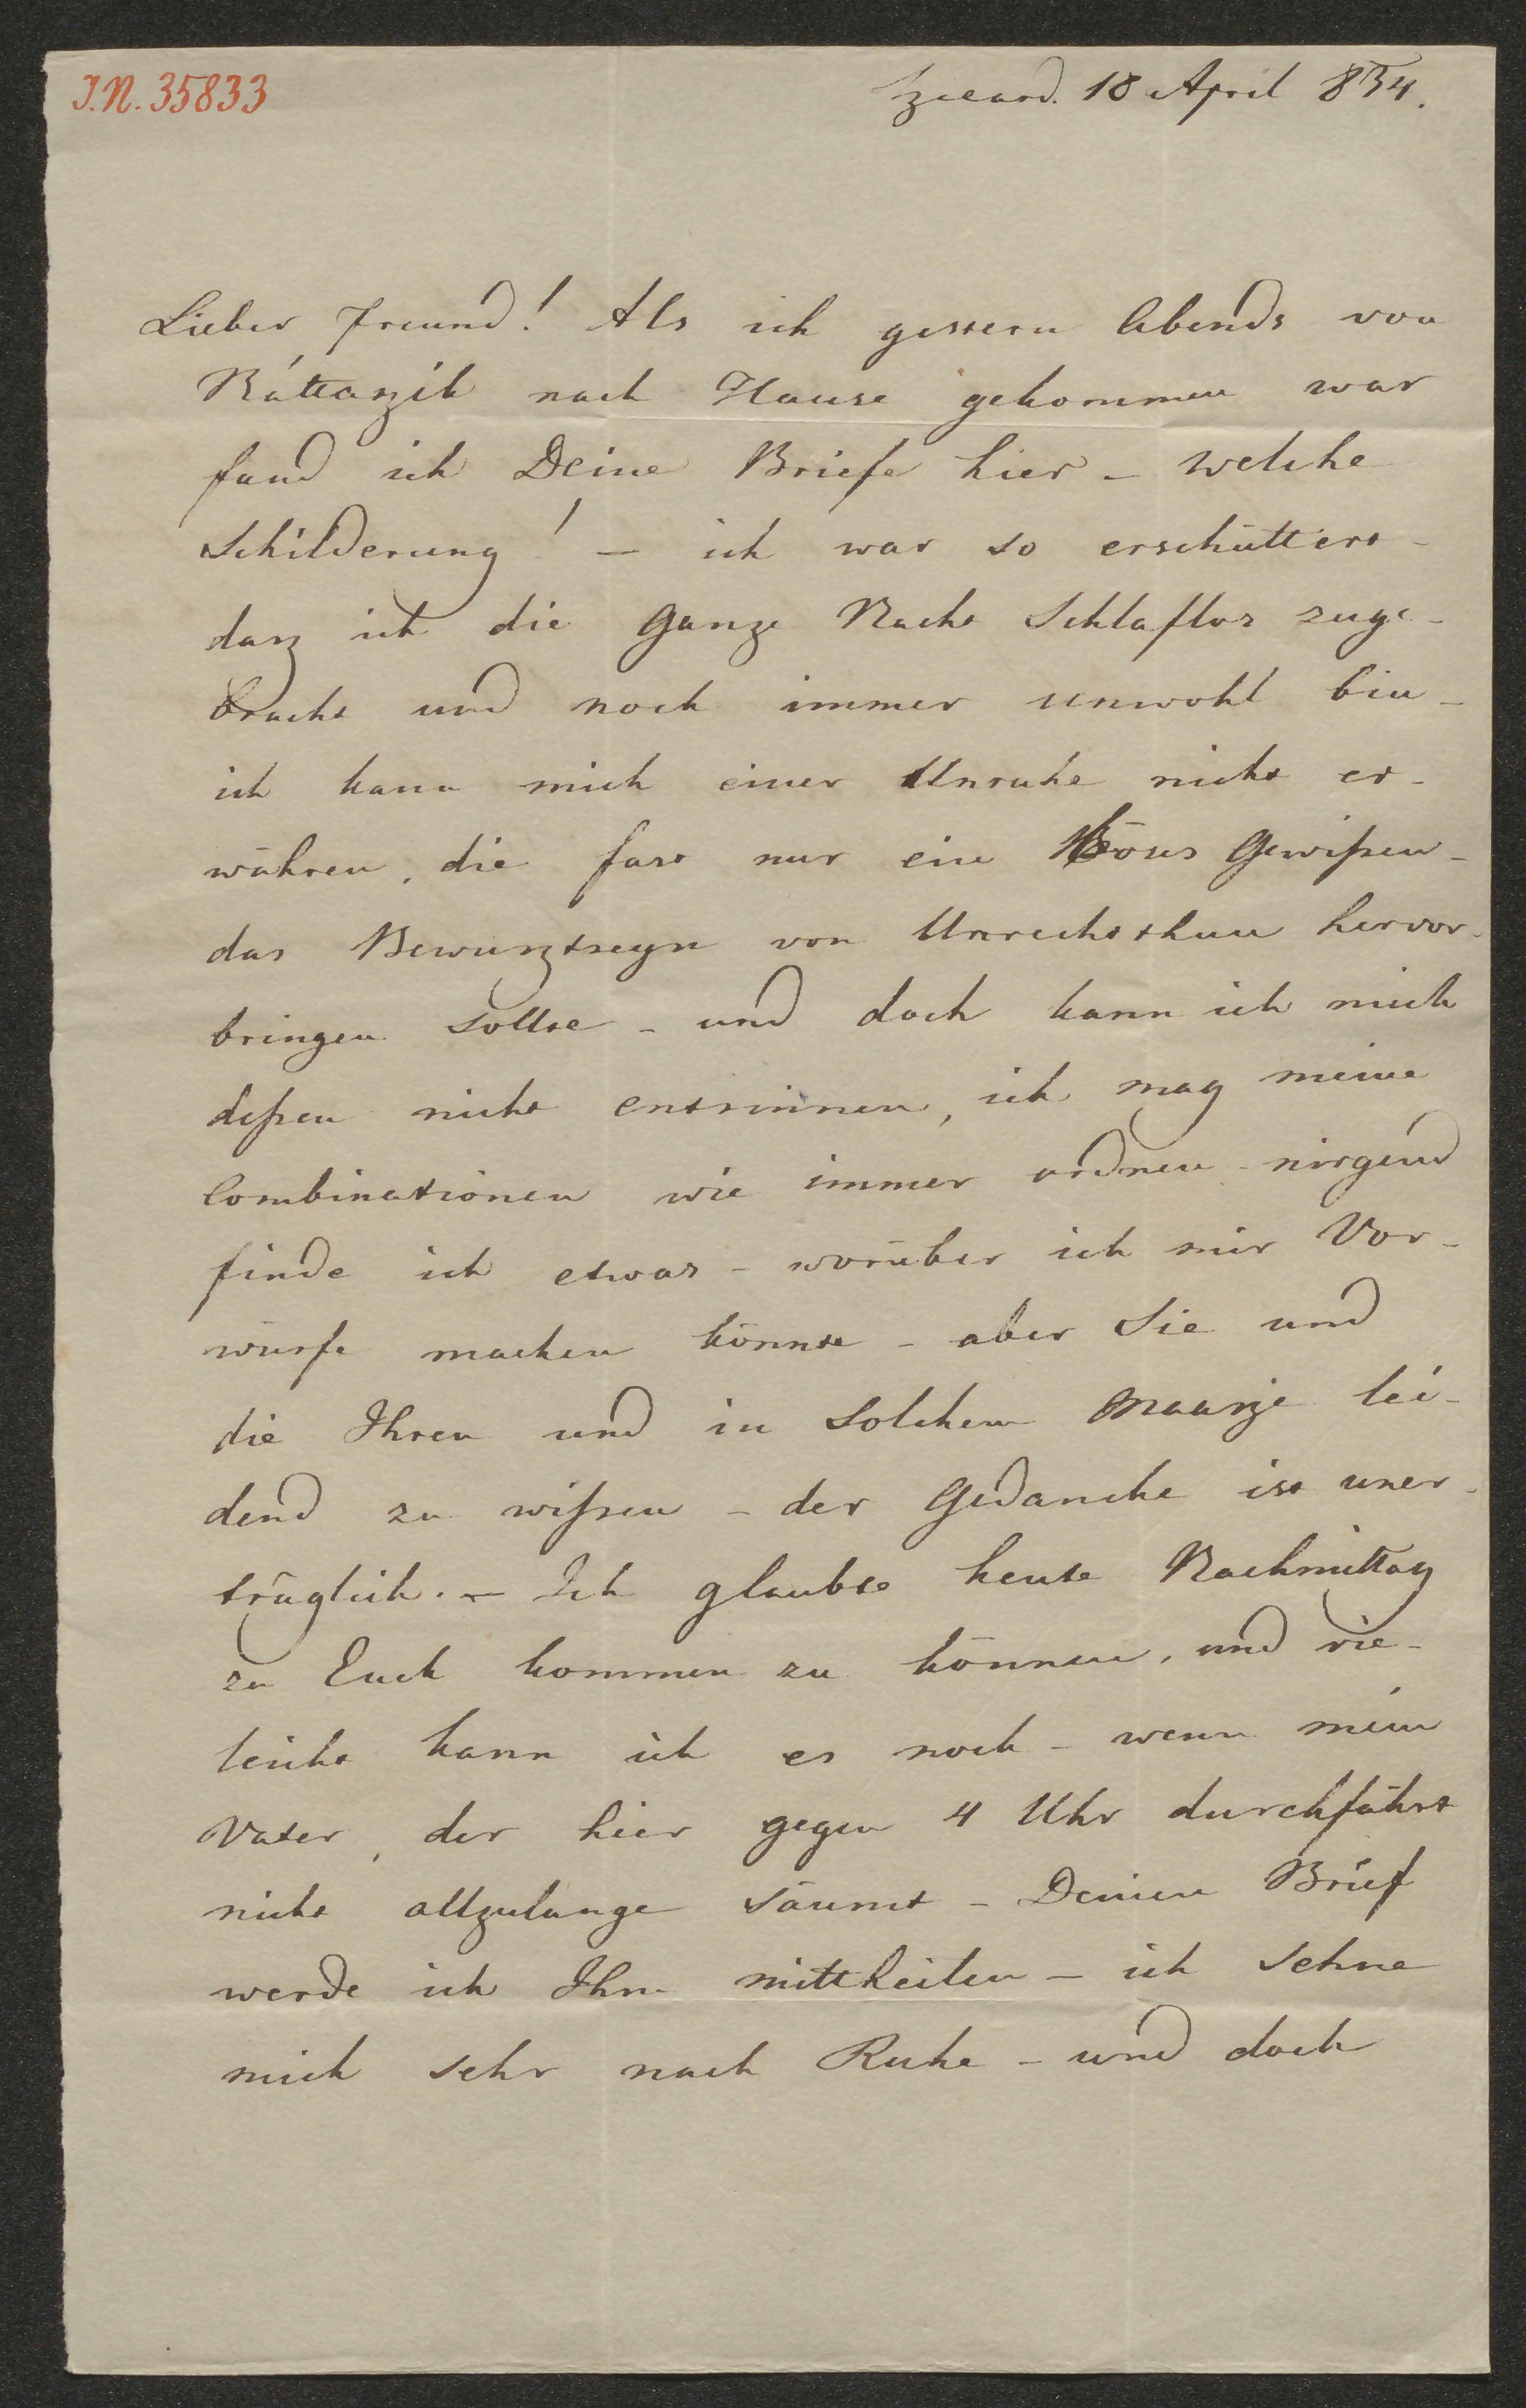 J.N. 35833
18 April 854.
Lieber Freund! Als ich gestern Abends von
Báttaszék nach Hause gekommen war
fand ich Deine Briefe hier – welche
Schilderung! – ich war so erschüttert –
dasz ich die ganze Nacht Schlaflos zuge-
bracht und noch immer unwohl bin –
ich kann mich einer Unruhe nicht er-
währen, die fast nur ein Böses Gewißen –
das Bewusztseyn von Unrechtthun hervor-
bringen sollte – und doch kann ich mich
deßen nicht entsinnen, ich mag meine
Combinationen wie immer ordnen – nirgend
finde ich etwas – worüber ich mir Vor-
würfe machen könnte – aber Sie und
die Ihren und in Solchem Maasze lei-
dend zu wißen – der Gedanke ist uner-
träglich. – Ich glaubte heute Nachmittag
zu Euch kommen zu können, und vie-
leicht kann ich es noch – wenn mein
Vater, der hier gegen 4 Uhr durchfährt
nicht allzulange säumt – Deinen Brief
werde ich Ihm mittheilen – ich sehne
mich sehr nach Ruhe – und doch